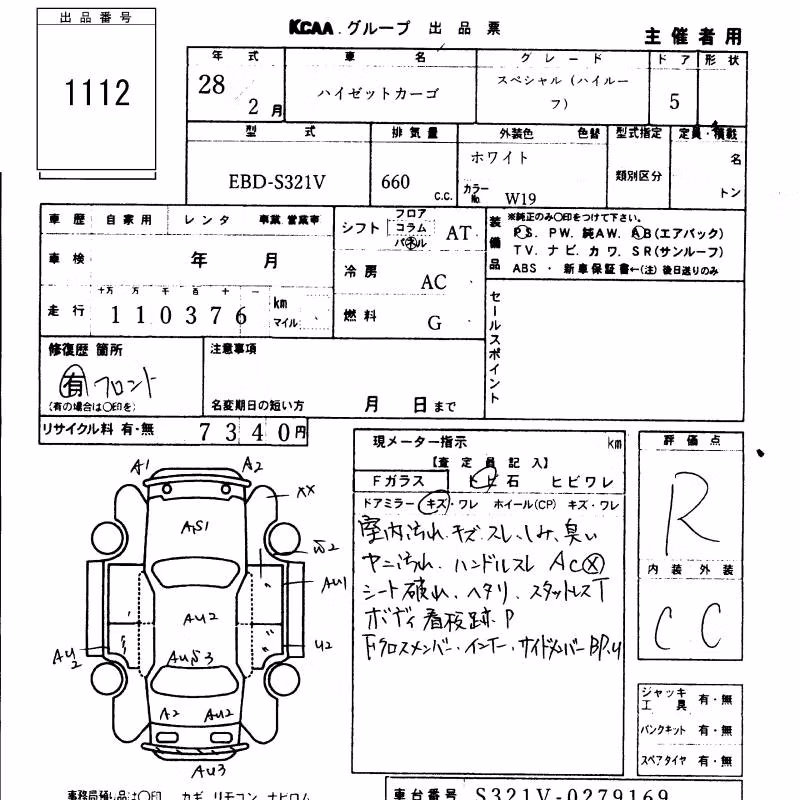 出品番号
1112
KCAA グループ 出品票
主催者用
年式 車名 グレード ドア 形状
28/2月 ハイゼットカーゴ スペシャル（ハイルーフ） 5
型式 排気量 外装色 色替 型式指定 定員・積載
EBD-S321V 660 C.C. ホワイト カラーNo. W19 類別区分 名 トン
車歴 自家用 レンタ 事業 営業車
車検 年 月
走行 十万 万 千 百 十 一
110376 km マイル
シフト フロア コラム パネル AT
冷房 AC
燃料 G
装備品
※純正のみ〇印をつけて下さい。
PS. PW. 純AW. AB(エアバック)
TV. ナビ. カワ. SR(サンルーフ)
ABS ・ 新車保証書←(注) 後日送りのみ
セールスポイント
修復歴 箇所
有 フロント
(有の場合は〇印を)
注意事項
名変期日の短い方 月 日まで
リサイクル料 有・無 7340円
現メーター指示 km
【査定員記入】
Fガラス トビ石 ヒビワレ
ドアミラー キズ・ワレ ホイール(CP) キズ・ワレ
室内汚れ.キズ.スレ.しみ.臭い
ヤニ汚れ.ハンドルスレ AC(X)
シート破れ.ヘタリ.スタットレスT
ボディ看板跡.P
Fクロスメンバー.インナー.サイドメンバーBP.U
評価点
R
内装 外装
C C
ジャッキ工具 有・無
パンクキット 有・無
スペアタイヤ 有・無
A1 A2
XX
AS1
W2
AU1
AU2
U2
AU2
AUS3
A2 AU2
AU3
事務局預り品は〇印 カギ リモコン ナビロム
車台番号 S321V-0279169